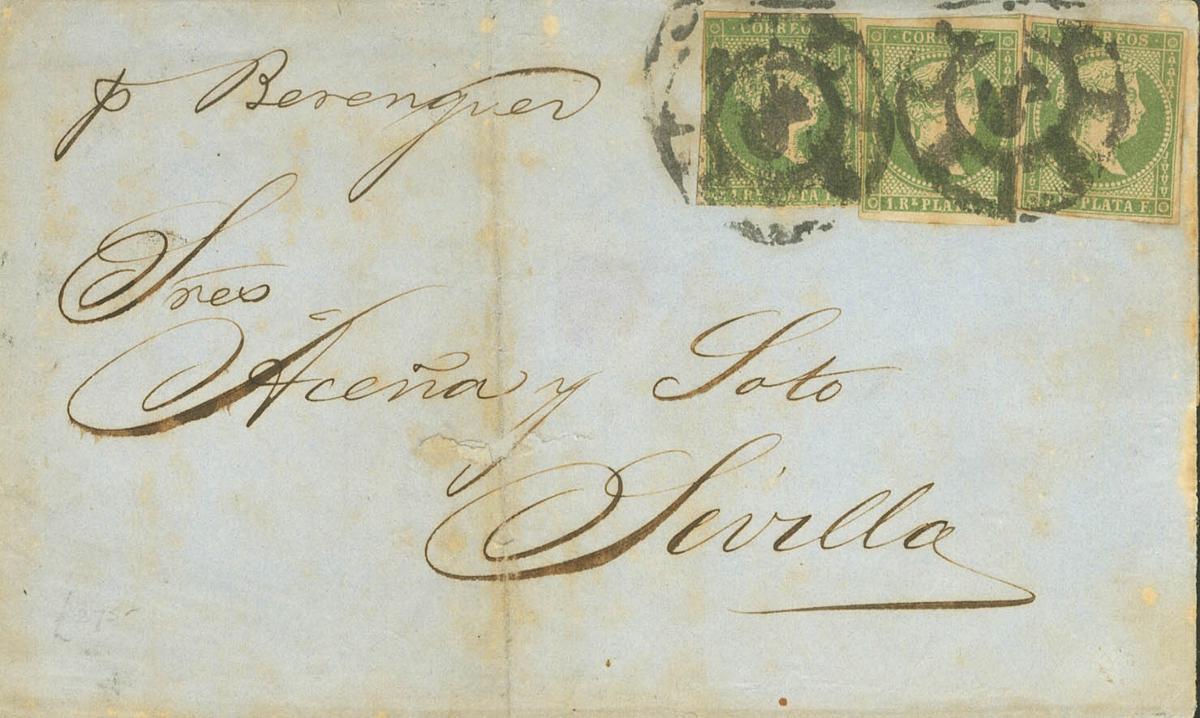 CORREOS
CORREOS
CORREOS
1 RL PLATA F.
1. RL PLATA F.
PLATA F.
p Berenguer
Sres
Aceña y Soto
Sevilla
£275-